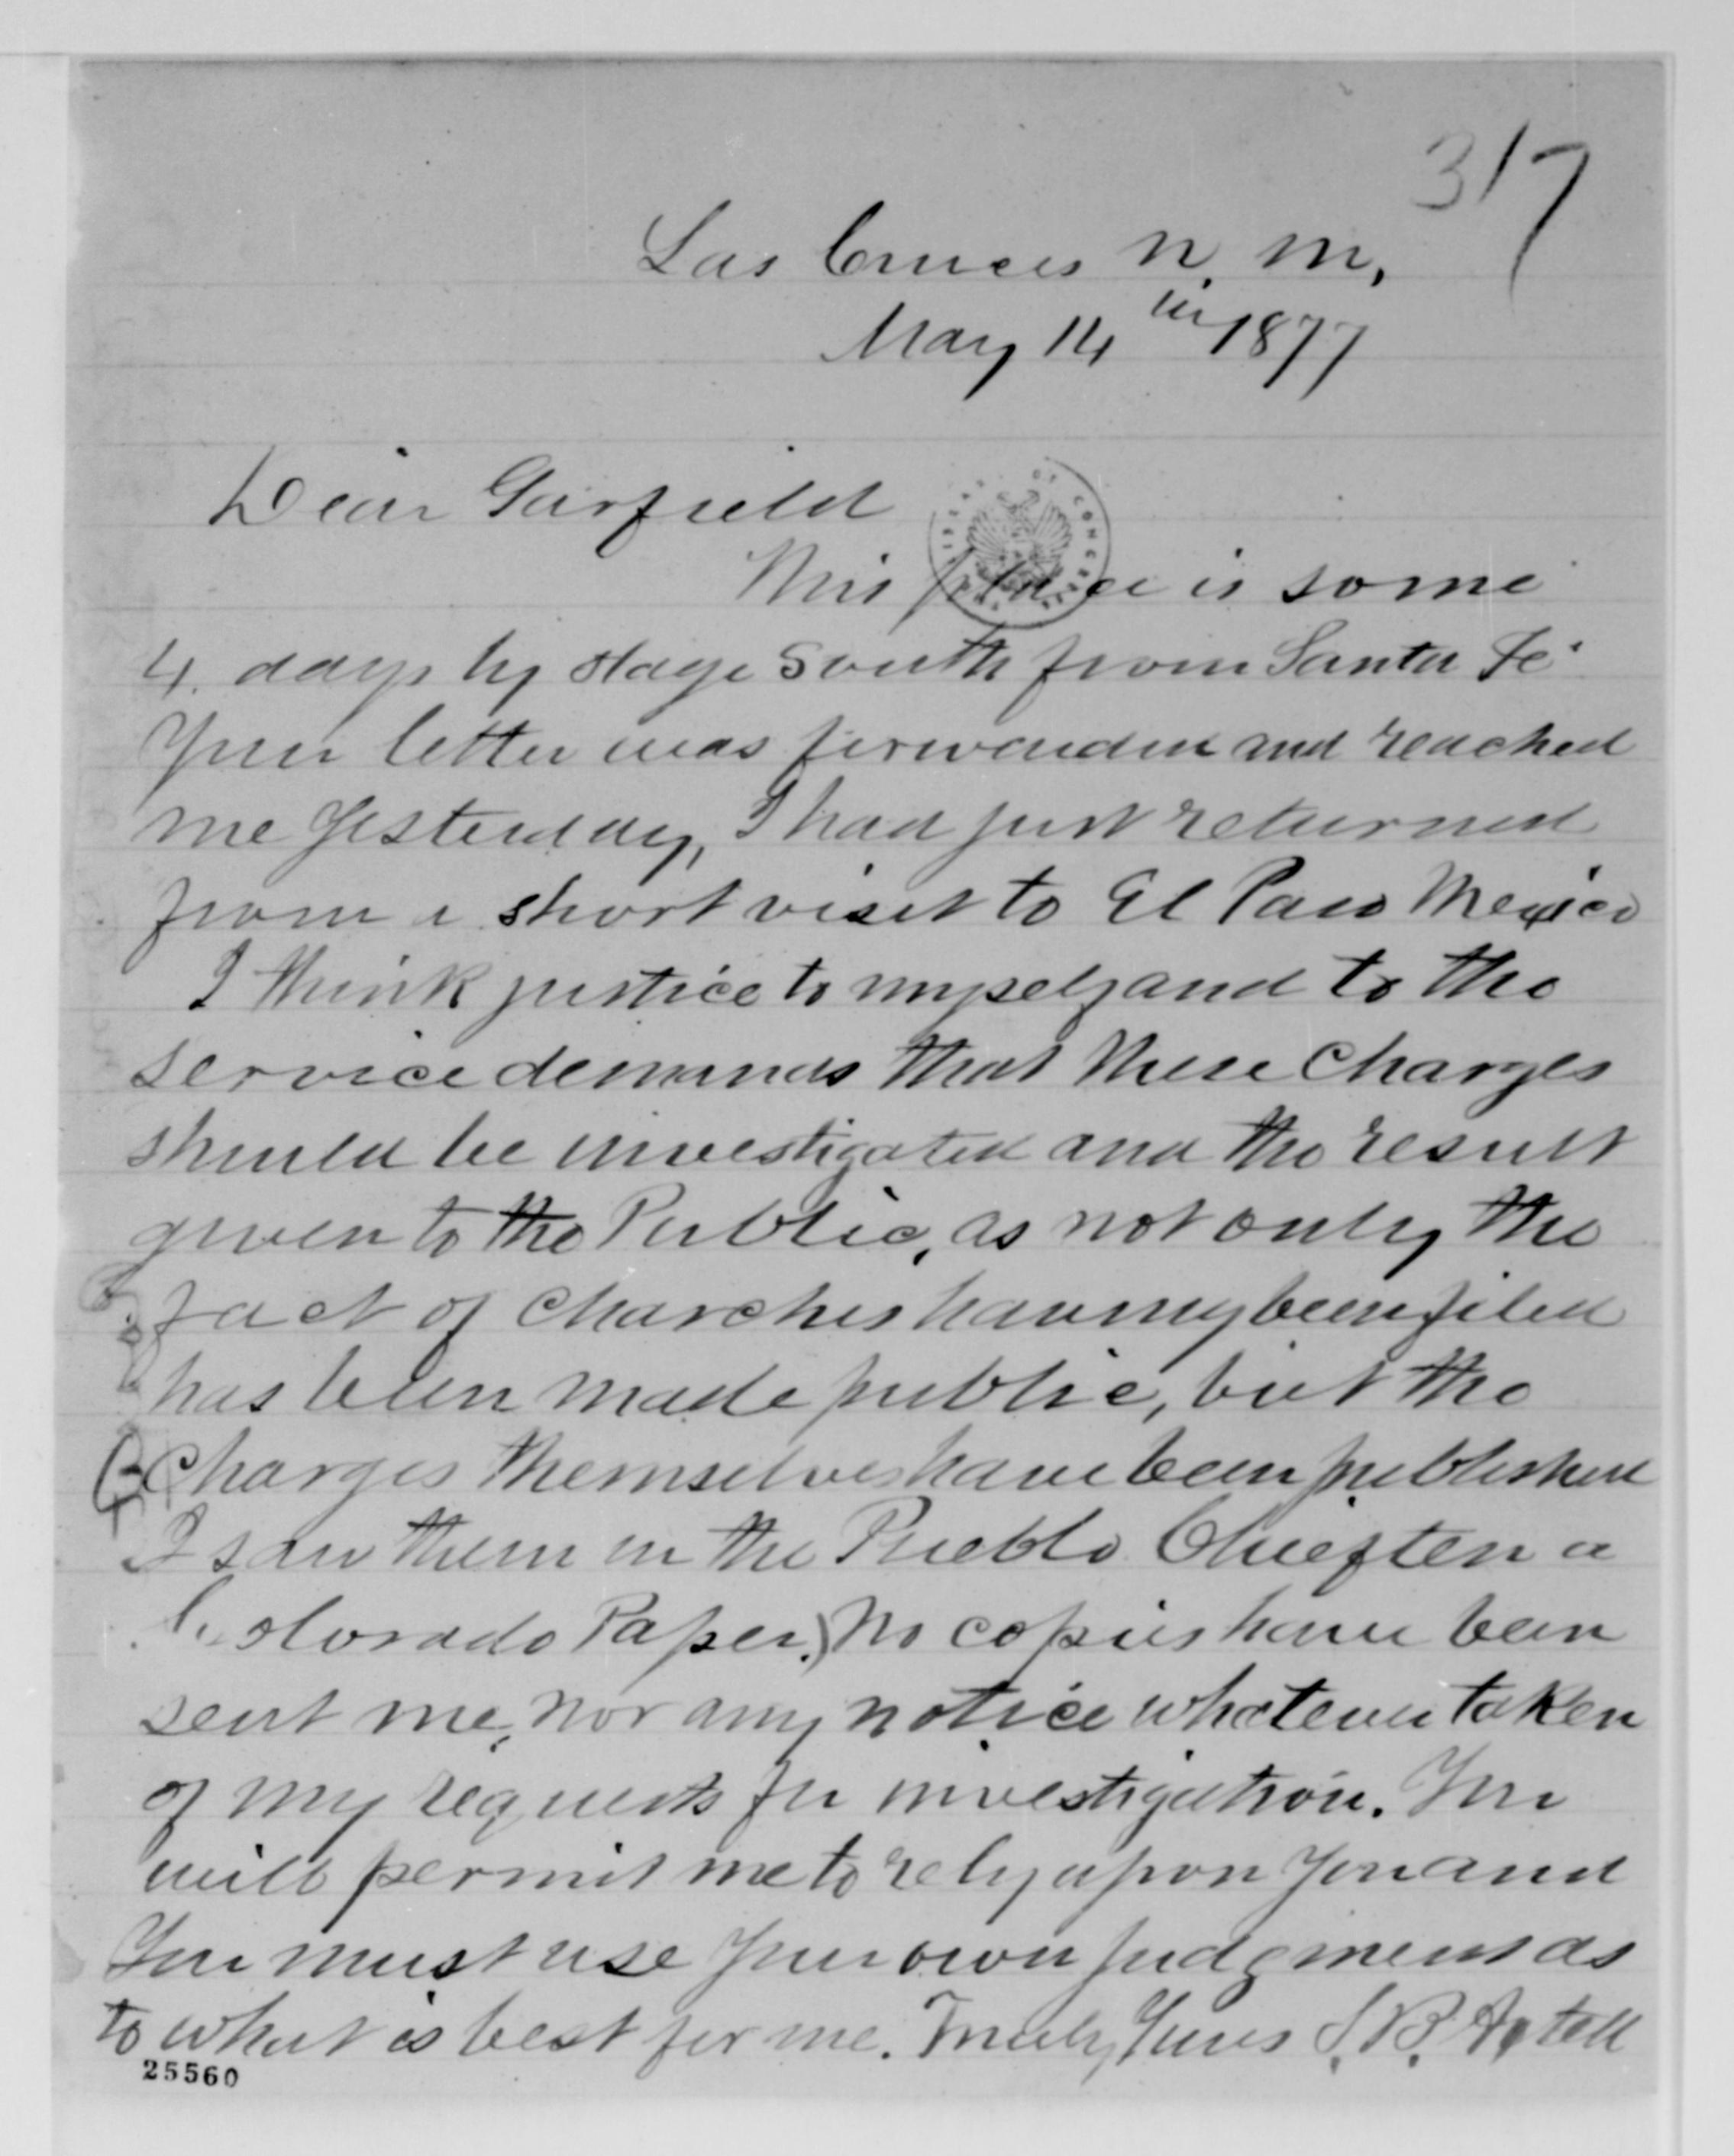 317
Las Cruces N. M.,
May 14th 1877
Dear Garfield
This place is some
4. days by stage South from Santa Fe.
Your letter was forwarded and reached
me yesterday, I had just returned
from a short visit to El Paso Mexico
I think justice to myself and to the
service demands that these Charges
should be investigated and the result
given to the Public, as not only the
fact of Charches having been filed
has been made public, but the
Charges themselves have been published
I saw them in the Pueblo Chieften a
Colorado Paper.) No copies have been
sent me, nor any notice whatever taken
of my requests for investigation. You
will permit me to rely upon you and
You must use your own judgment as
to what is best for me. Truly Yours S. B. Axtell
25560